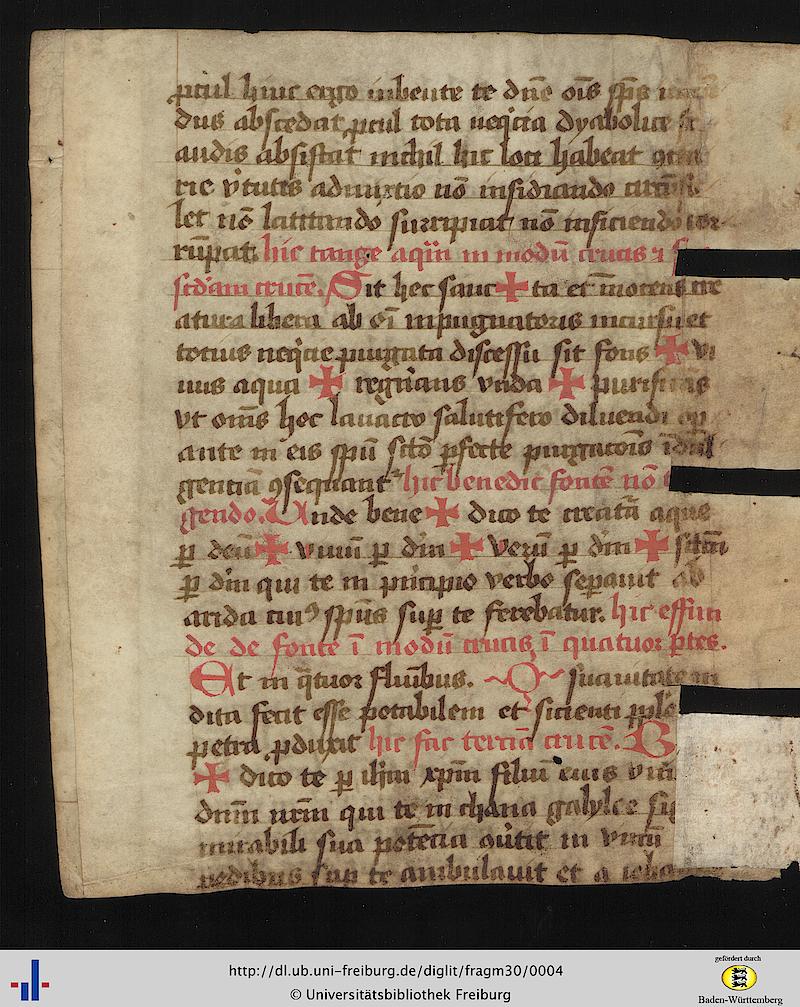 ꝓcul hinc ergo iubente te dn̄e oīs sp̄s
dus abscedat ꝓcul tota neq̇cia dyabolice
audis absistat nichil hic loci habeat
rie v̓tutis admixtio nō insidiando
let nō latitando surripiat nō inficiendo
rūpat. hic tange aquā in modū crucis ⁊
scd̓am crucē. Sit hec sanc ✠ ta et īnocens cre
atura libera ab oī inpugnatoris incursu et
totius neq̇cie purgata discessu sit fons ✠ vi
uus aqua ✠ regn̓ans vnda ✠ purificās
vt om̄s hoc lauacro salutifero diluendi op̄
ante in eis sp̄u sc̄tō ꝑfecte purgatiōis īdul
gentiā ꝯsequant᷑ hic benedic fontē nō
gendo. Unde bene ✠ dico te creatā aque
ꝑ deū ✠ viuū ꝑ dm̄ ✠ verū ꝑ dm̄ ✠ sc̄tm̄
ꝑ dm̄ qui te in principio verbo seꝑauit ab
arida cui⁹ sp̄us suꝑ te ferebatur. hic effun
de de fonte ī modū crucis ī quatuor ꝑtes.
Et in q̈tuor fluīibus. suauitate in
dita fecit esse potabilem et sicienti ppl̓o
petra ꝓduxit hic fac terciā crucē. B
✠ dico te ꝑ ih̄m xp̄m filiū eius vni
dnm̄ nrm̄ qui te in chana galylee
mirabili sua potēcia ꝯu̓tit in vinū
pedibus suꝑ te ambulauit et a
http://dl.ub.uni-freiburg.de/diglit/fragm30/0004
© Universitätsbibliothek Freiburg
gefördert durch
Baden-Württemberg